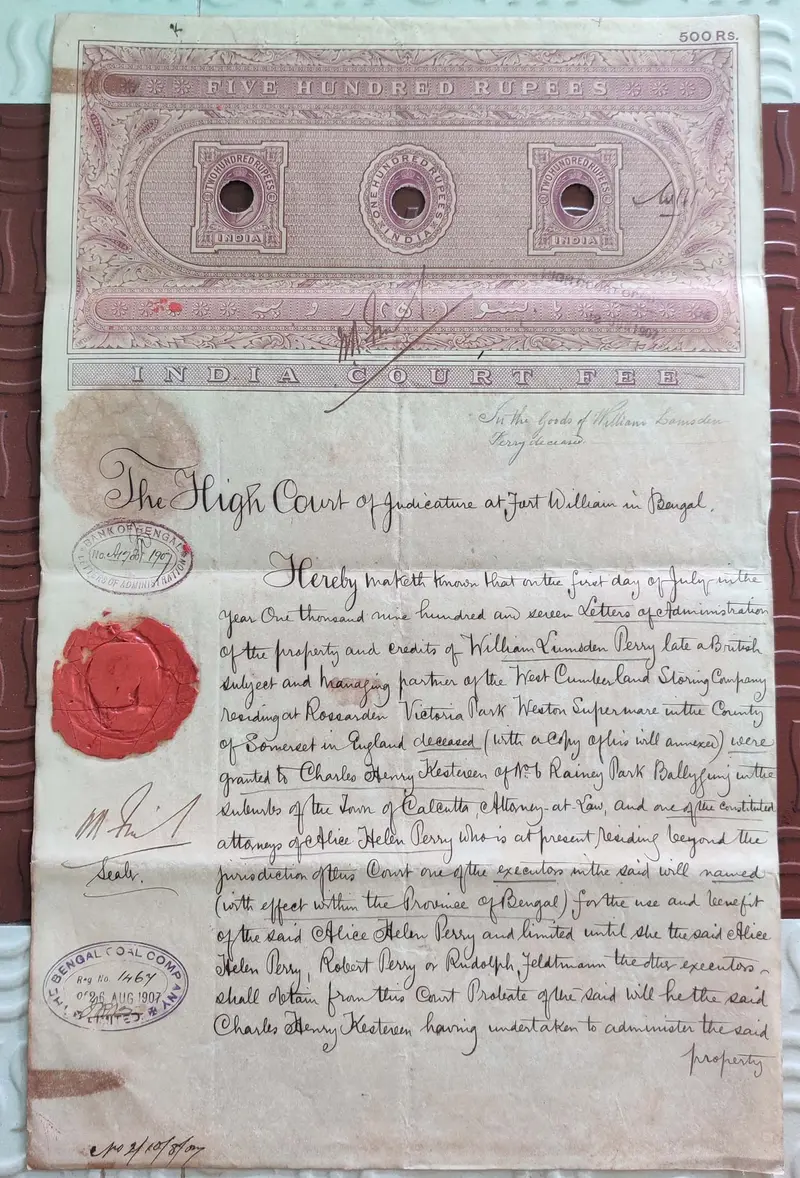 500 Rs.
FIVE HUNDRED RUPEES
TWO HUNDRED RUPEES
INDIA
ONE HUNDRED RUPEES
INDIA
TWO HUNDRED RUPEES
INDIA
INDIA COURT FEE
In the Goods of William Lumsden
Perry deceased.
The High Court of Judicature at Fort William in Bengal.
BANK OF BENGAL
No. 1907
LETTERS OF ADMINISTRATION
Hereby maketh known that on the first day of July in the
year One thousand nine hundred and seven Letters of Administration
of the property and credits of William Lumsden Perry late a British
subject and managing partner of the West Cumberland Storing Company
residing at Rossarden Victoria Park Weston Supermare in the County
of Somerset in England deceased (with a copy of his will annexed) were
granted to Charles Henry Kesteven of No. 6 Rainey Park Ballygunj in the
suburbs of the Town of Calcutta, Attorney-at-Law, and one of the constituted
attorneys of Alice Helen Perry who is at present residing beyond the
jurisdiction of this Court one of the executors in the said will named
(with effect within the Province of Bengal) for the use and benefit
of the said Alice Helen Perry and limited until she the said Alice
Helen Perry, Robert Perry or Rudolph, Feldtmann the other executors
shall obtain from this Court Probate of the said will he the said
Charles Henry Kesteven having undertaken to administer the said
property
Sealer.
THE BENGAL COAL COMPANY
Reg No. 1467
26 AUG 1907